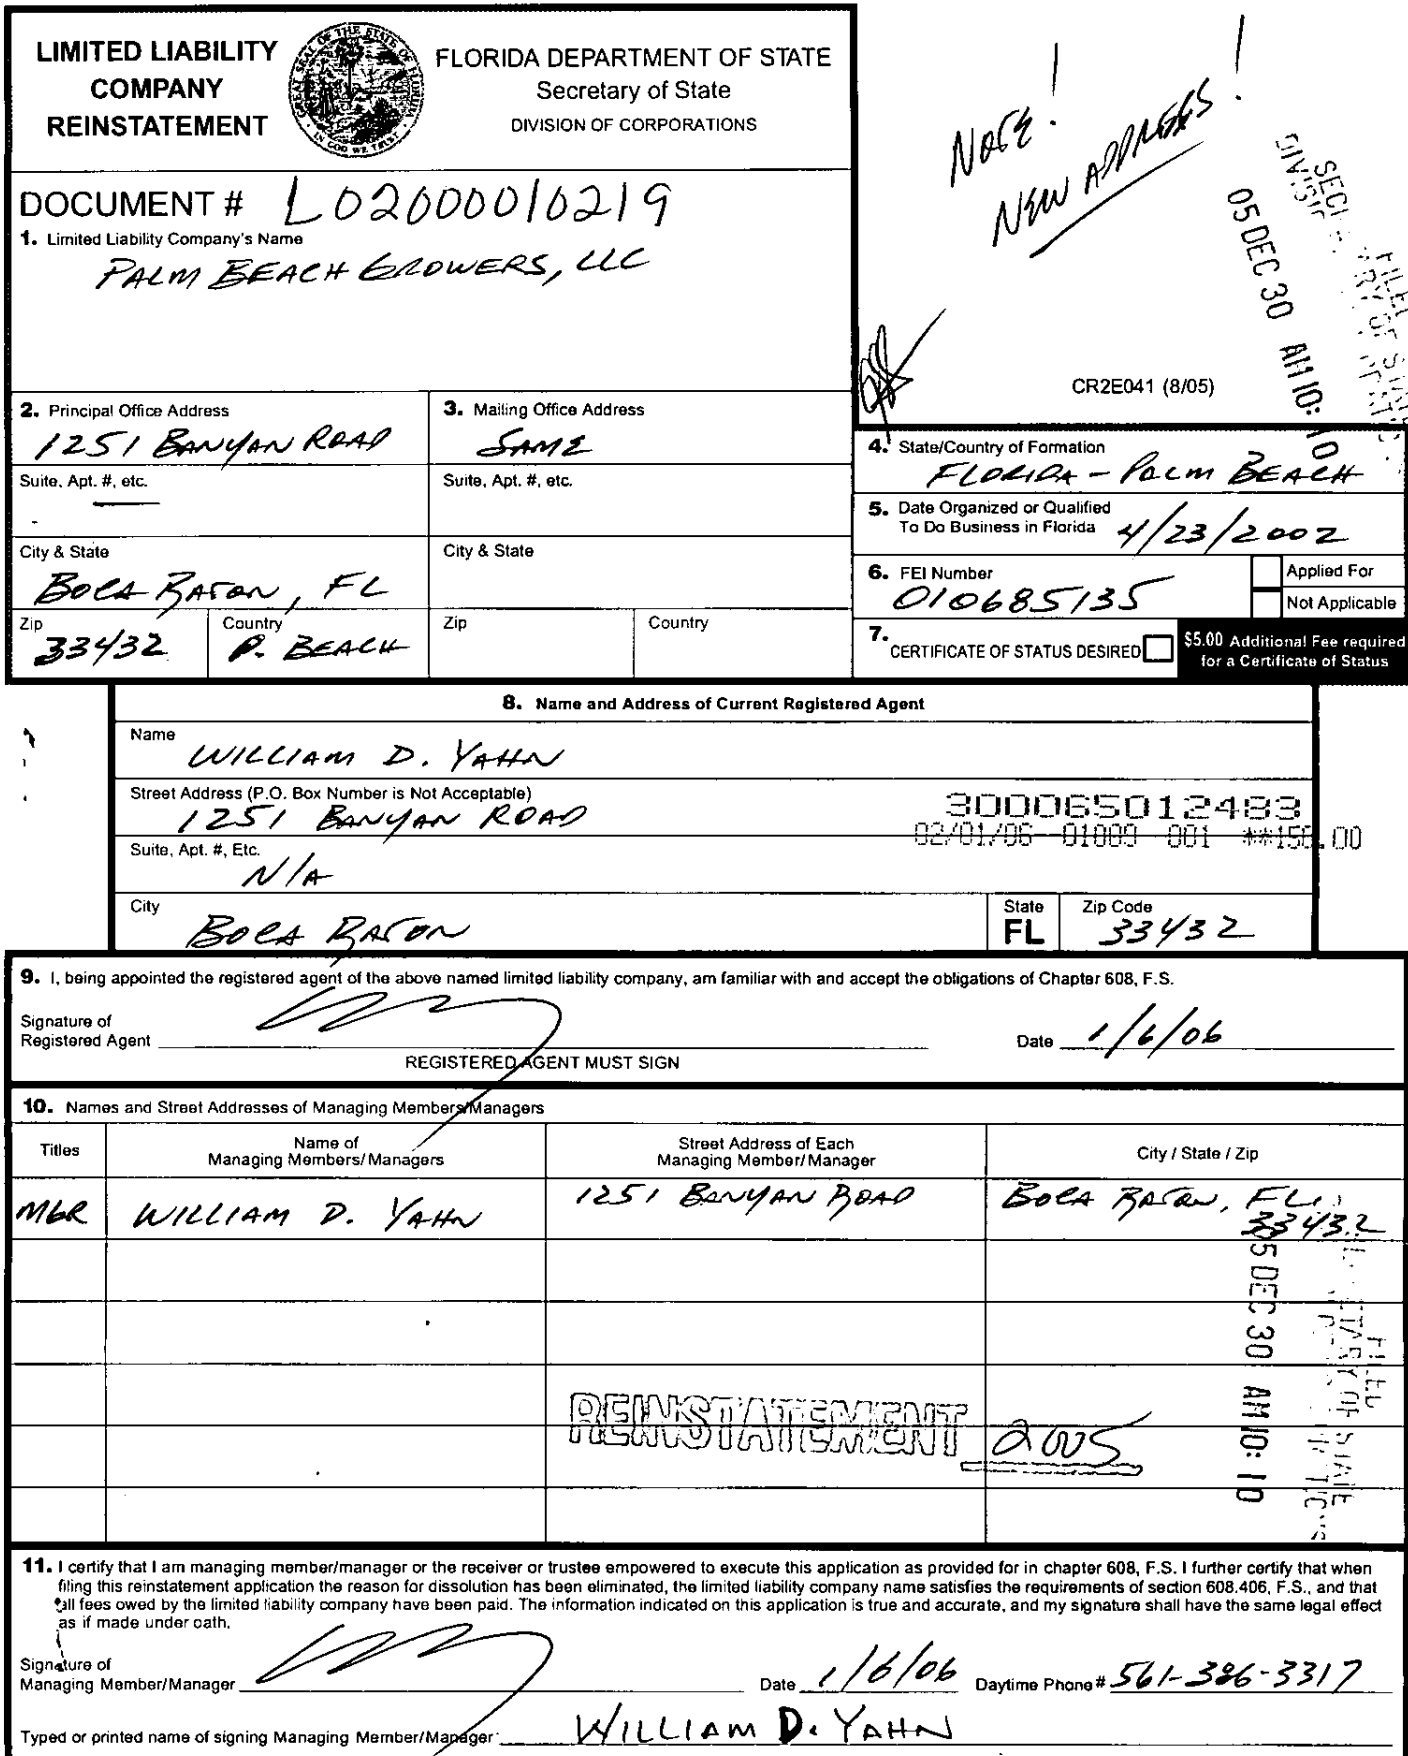 LIMITED LIABILITY
COMPANY
REINSTATEMENT
FLORIDA DEPARTMENT OF STATE
Secretary of State
DIVISION OF CORPORATIONS
NOTE!
NEW ADDRESS!
05 DEC 30 AM 10: 10
DOCUMENT # L02000010219
1. Limited Liability Company's Name
PALM BEACH GROWERS, LLC
CR2E041 (8/05)
2. Principal Office Address
1251 BANYAN ROAD
3. Mailing Office Address
SAME
Suite, Apt. #, etc.
Suite, Apt. #, etc.
City & State
BOCA RATON, FL
City & State
Zip
33432
Country
P. BEACH
Zip
Country
4. State/Country of Formation
FLORIDA - PALM BEACH
5. Date Organized or Qualified
To Do Business in Florida 4/23/2002
6. FEI Number
010685135
Applied For
Not Applicable
7. CERTIFICATE OF STATUS DESIRED
$5.00 Additional Fee required
for a Certificate of Status
8. Name and Address of Current Registered Agent
Name
WILLIAM D. YAHN
Street Address (P.O. Box Number is Not Acceptable)
1251 BANYAN ROAD
300065012483
02/01/06 01009 001 **150.00
Suite, Apt. #, Etc.
N/A
City
BOCA RATON
State
FL
Zip Code
33432
9. I, being appointed the registered agent of the above named limited liability company, am familiar with and accept the obligations of Chapter 608, F.S.
Signature of
Registered Agent
Date 1/6/06
REGISTERED AGENT MUST SIGN
10. Names and Street Addresses of Managing Members/Managers
Titles
Name of
Managing Members/Managers
Street Address of Each
Managing Member/Manager
City / State / Zip
MGR WILLIAM D. YAHN 1251 BANYAN ROAD BOCA RATON, FL
33432
05 DEC 30 AM 10: 10
REINSTATEMENT 2005
11. I certify that I am managing member/manager or the receiver or trustee empowered to execute this application as provided for in chapter 608, F.S. I further certify that when
filing this reinstatement application the reason for dissolution has been eliminated, the limited liability company name satisfies the requirements of section 608.406, F.S., and that
all fees owed by the limited liability company have been paid. The information indicated on this application is true and accurate, and my signature shall have the same legal effect
as if made under oath.
Signature of
Managing Member/Manager
Date 1/6/06 Daytime Phone # 561-386-3317
Typed or printed name of signing Managing Member/Manager: WILLIAM D. YAHN